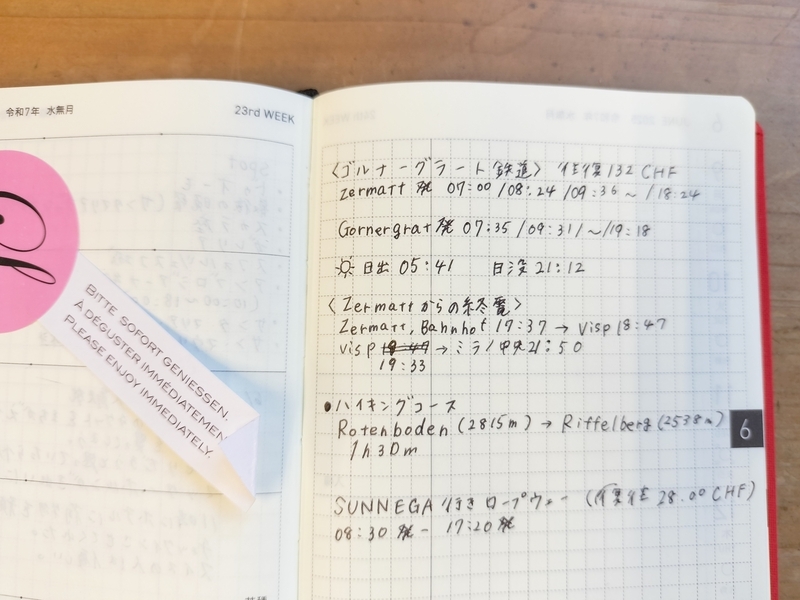 令和7年 水無月
23rd WEEK
BITTE SOFORT GENIESSEN.
À DÉGUSTER IMMÉDIATEMEN
PLEASE ENJOY IMMEDIATELY.
〈ゴルナーグラート鉄道〉 往復132 CHF
Zermatt 発 07:00/08:24/09:36～/18:24
Gornergrat発 07:35/09:31/～/19:18
日出 05:41 日没 21:12
〈Zermattからの終電〉
Zermatt, Bahnhof 17:37 → Visp 18:47
Visp → ミラノ中央21:50
19:33
●ハイキングコース
Rotenboden (2815m) → Riffelberg (2538m)
1h30m
6
SUNNEGA行きロープウェー (復往 28.00 CHF)
08:30発 - 17:20発